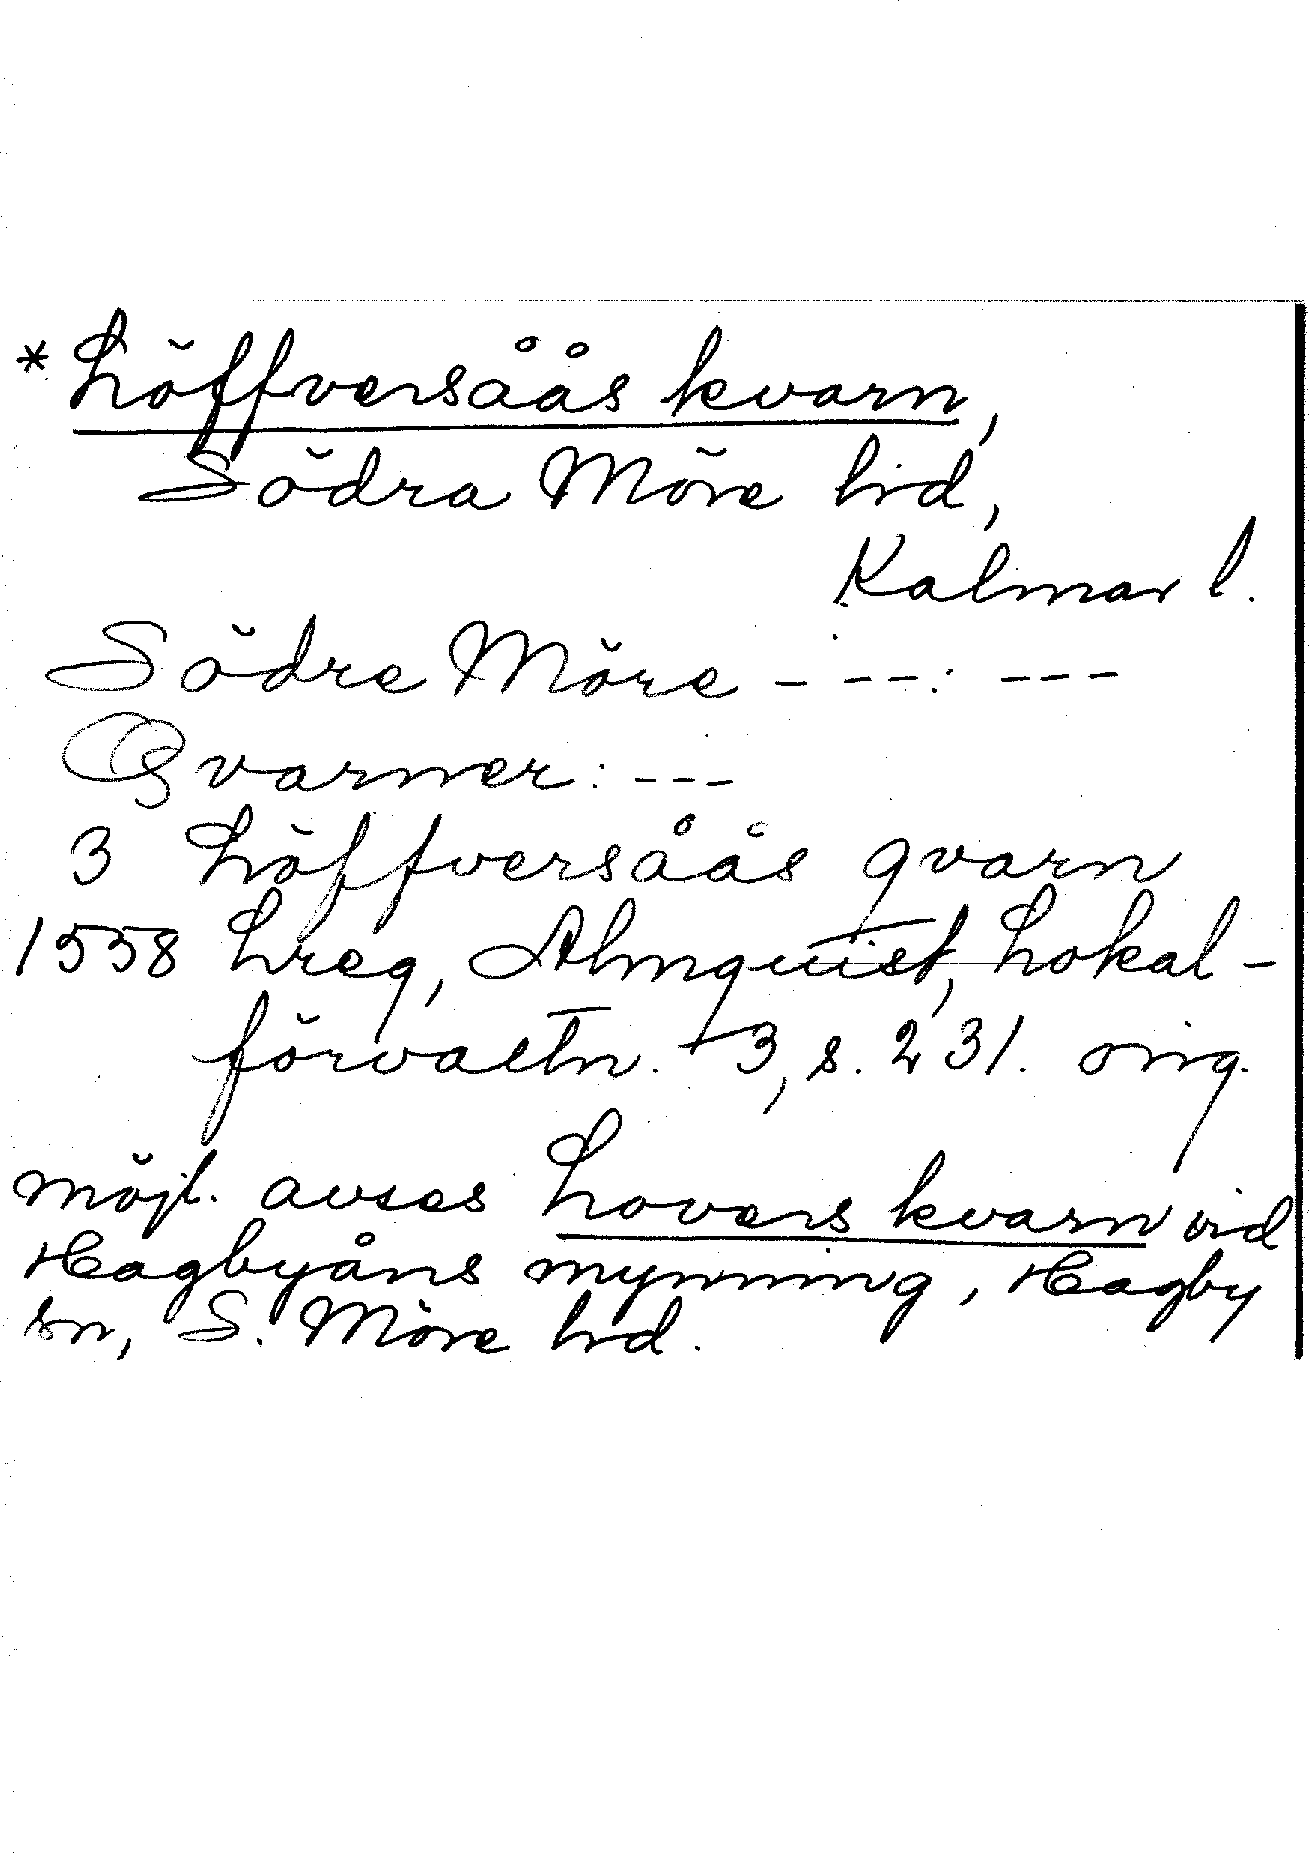 * Löffversåås kvarn,
Södra Möre hd,
Kalmar l.
Södre Möre - ---: ---
Qvarner: ---
3 Löffversåås qvarn
1558 Lreg, Almquist, Lokal-
förvaltn. 3, s. 231. orig.
möjl. avses Lovers kvarn vid
Hagbyåns mynning, Hagby
sn, S. Möre hd.